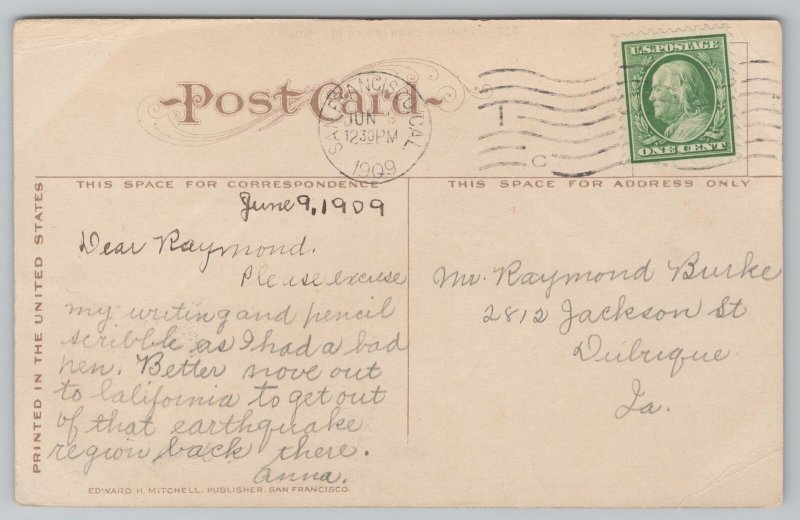 Post Card
SAN FRANCISCO, CAL.
JUN 9
12 30 PM
1909
U.S. POSTAGE
ONE CENT
I
C
THIS SPACE FOR CORRESPONDENCE
THIS SPACE FOR ADDRESS ONLY
PRINTED IN THE UNITED STATES
June 9, 1909
Dear Raymond.
Please excuse
my writing and pencil
scribble as I had a bad
pen. Better move out
to California to get out
of that earthquake
region back there.
Anna.
Mr. Raymond Burke
2812 Jackson St
Dubuque
Ia.
EDWARD H. MITCHELL, PUBLISHER, SAN FRANCISCO.